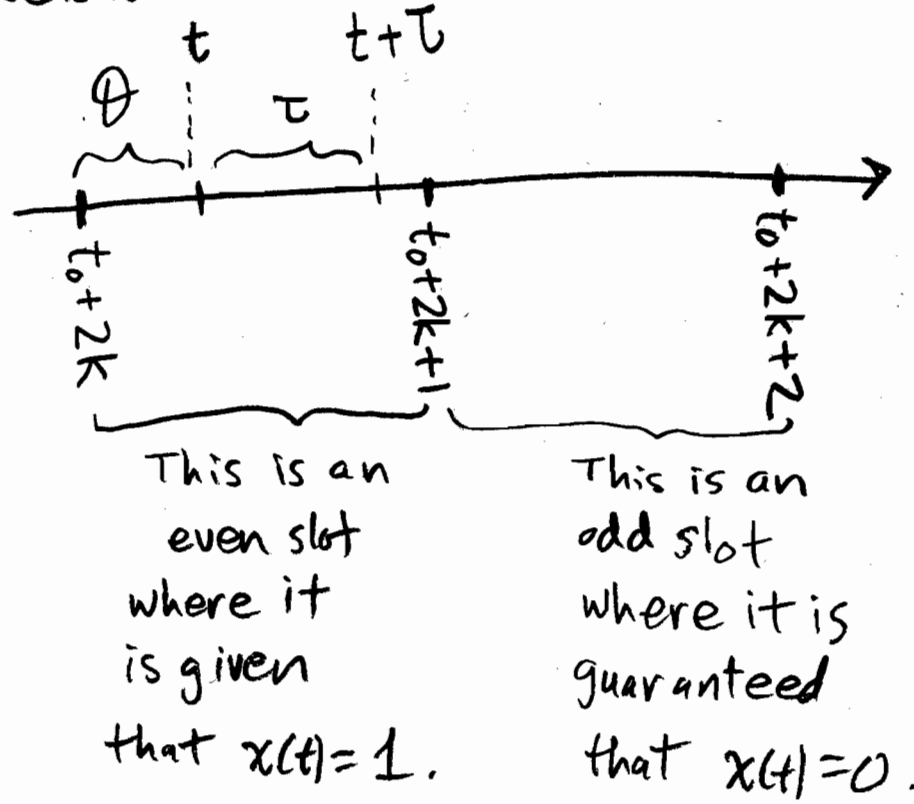 t t+τ
θ τ
t₀+2k t₀+2k+1 t₀+2k+2
This is an
even slot
where it
is given
that x(t)=1.
This is an
odd slot
where it is
guaranteed
that x(t)=0.